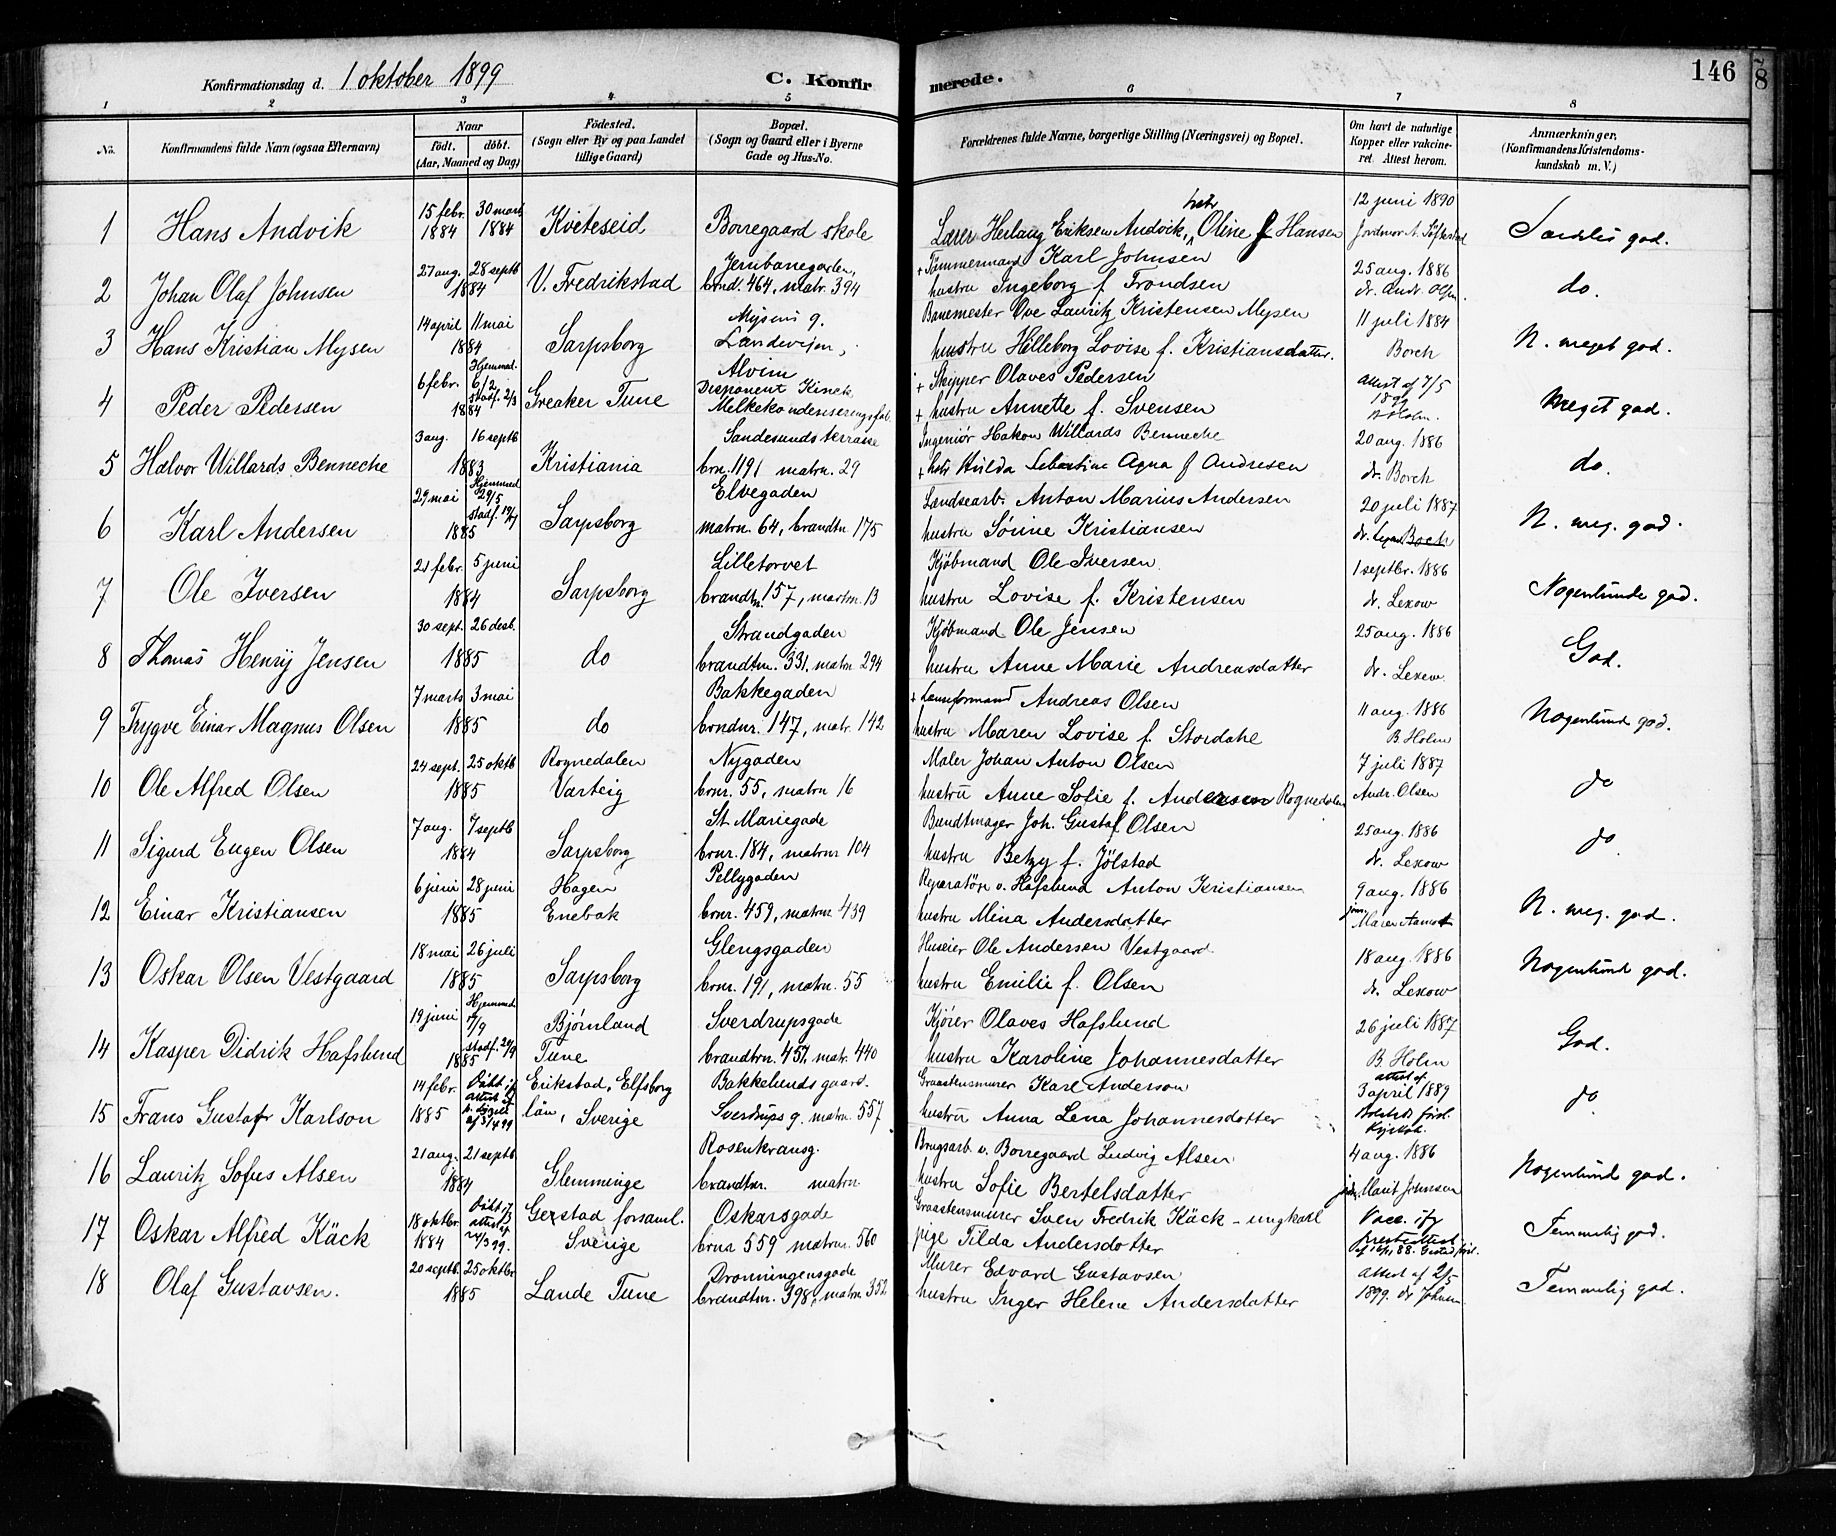 146
8
Konfirmationsdag d. 1 oktober 1899 C. Konfirmerede.
1 2 3 4 5 6 7 8
No. Konfirmandens fulde Navn (ogsaa Efternavn) Naar födt. döbt. (Aar, Maaned og Dag) Födested. (Sogn eller By og paa Landet tillige Gaard) Bopæl. (Sogn og Gaard eller i Byerne Gade og Hus-No. Forældrenes fulde Navne, borgerlige Stilling (Næringsvei) og Bopæl. Om havt de naturlige Kopper eller vakcineret. Attest herom. Anmærkninger. (Konfirmandens Kristendomskundskab m. V.)
1 Hans Andvik 15 febr. 1884 30 marts 1884 Kviteseid Borregaard skole Lærer Herlaug Eriksen Andvik, hstr Oline f Hansen 12 juni 1890 særdeles god.
2 Johan Olaf Johnsen 27 aug. 28 septb 1884 V. Fredrikstad Jernbanegaden, brnd. 464, matr. 394 + Tømmermand Karl Johnsen hustru Ingeborg f. Frondsen 25 aug. 1886 dr. Andr. Olsen. do.
3 Hans Kristian Mysen 14 april 11 mai 1884 Sarpsborg Mysens g. Landeveien, Banemester Ove Lauritz Kristensen Mysen hustru Hilleborg Lovise f. Kristiansdatter. 11 juli 1884 Borch N. meget god.
4 Peder Pedersen 6 febr. Hjemmed. 6/2 stadf. 2/3 1884 Greaker Tune Alvim Disponent Kinck Melkekondenseringsfab. + Skipper Olaves Pedersen + hustru Annette f. Svensen Attest af 7/5 1899 B Holm. Meget god.
5 Halvor Willards Bennecke 3 aug. 16 septb 1883 Kristiania Sandesunds terrasse brn. 1191 matrn. 29 Ingeniør Hakon Willards Bennecke + hstr Hilda Sebastine Agna f Andresen 20 aug. 1886 dr. Borch do.
6 Karl Andersen 29 mai Hjemmed 29/5 stadf. 19/7 1885 Sarpsborg Elvegaden matrn. 64, brandtn 175 Landsearb. Anton Marius Andersen hustru Sørine Kristiansen 20 juli 1887 dr. Borch N. meg. god.
7 Ole Iversen 21 febr. 5 juni 1884 Sarpsborg Lilletorvet brandtn. 157, matrn. 13 Kjøbmand Ole Iversen. hustru Lovise f. Kristensen 1 septbr. 1886 dr. Lexow Nogenlunde god.
8 Thomas Henry Jensen 30 sept. 26 desb. 1885 do Strandgaden brandtnr. 331, matrn 294 Kjøbmand Ole Jensen hustru Anne Marie Andreasdatter 25 aug. 1886 dr. Lexow. God.
9 Trygve Einar Magnus Olsen 7 marts 3 mai 1885 do Bakkegaden brndnr. 147, matr. 142 + Andreas Olsen hustru Maren Lovise f. Stordahl 11 aug. 1886 B Holm Nogenlund god.
10 Ole Alfred Olsen 24 sept. 25 oktb 1885 Rognedalen Varteig Nygaden brnr. 55, matrn 16 Maler Johan Anton Olsen hustru Anne Sofie f. Andersen Rognedalen 7 juli 1887 Andr. Olsen do
11 Sigurd Eugen Olsen 7 aug. 7 septb 1884 Sarpsborg St. Mariegade brnr. 184, matrnr 104 Bundtmager Joh. Gustaf Olsen hustru Betzy f. Jölstad 25 aug. 1886 dr. Lexow do
12 Einar Kristiansen 6 juni 28 juni 1885 Hagen Enebak Pellygaden brnr. 459, matrnr 439 Reparatør v. Hafslund Anton Kristiansen hustru Mina Andersdatter 9 aug. 1886 jdm. Maren N. meg. god.
13 Oskar Olsen Vestgaard 18 mai 26 juli 1885 Sarpsborg Glengsgaden brnr. 191, matrn. 55 Huseier Ole Andersen Vestgaard. hustru Emilie f. Olsen 18 aug. 1886 dr. Lexow Nogenlund god.
14 Kasper Didrik Hafslund 19 juni Hjemmed /9 stadf. 20/9 1885 Bjørnland Tune Sverdrupsgade brandtnr. 457, matr. 440 Kjører Olaves Hafslund hustru Karoline Johannesdatter 26 juli 1887 B. Holm God.
15 Frans Gustaf Karlson 14 febr. 1885 Döbt if attest af Erikstad, Elfsborg län, Sverige Bakkelunds gaard. Sverdrups g. matrn. 557 Graastensmurer Karl Anderson hustru Anna Lena Johannesdotter attest af 3 april 1889 do
16 Lauritz Sofus Alsen 21 aug. 21 septb 1884 Glemminge Rosenkransg. brandtnr. matrn. Brugsarb v. Borregaard Ludvig Alsen hustru Sofie Bertelsdatter 4 aug. 1886 jdm. Marit Johnsen Nogenlund god.
17 Oskar Alfred Käck 18 oktbr. 1884 Döbt if attest af 14/3 99. Gerstad forsaml. Sverige Oskarsgade brnr 559 matrn. 560 Graastensmurer Sven Fredrik Käck - ungkarl pige Tilda Andersdotter Vacc. ifg presteattest Temmelig god.
18 Olaf Gustavsen. 20 septb. 25 oktbr 1885 Lande Tune Dronningensgade brandtnr. 398, matrn 352 Murer Edvard Gustavsen hustru Inger Helene Andersdatter Attest af 2/5 1899. dr Johnsen. Temmelig god.